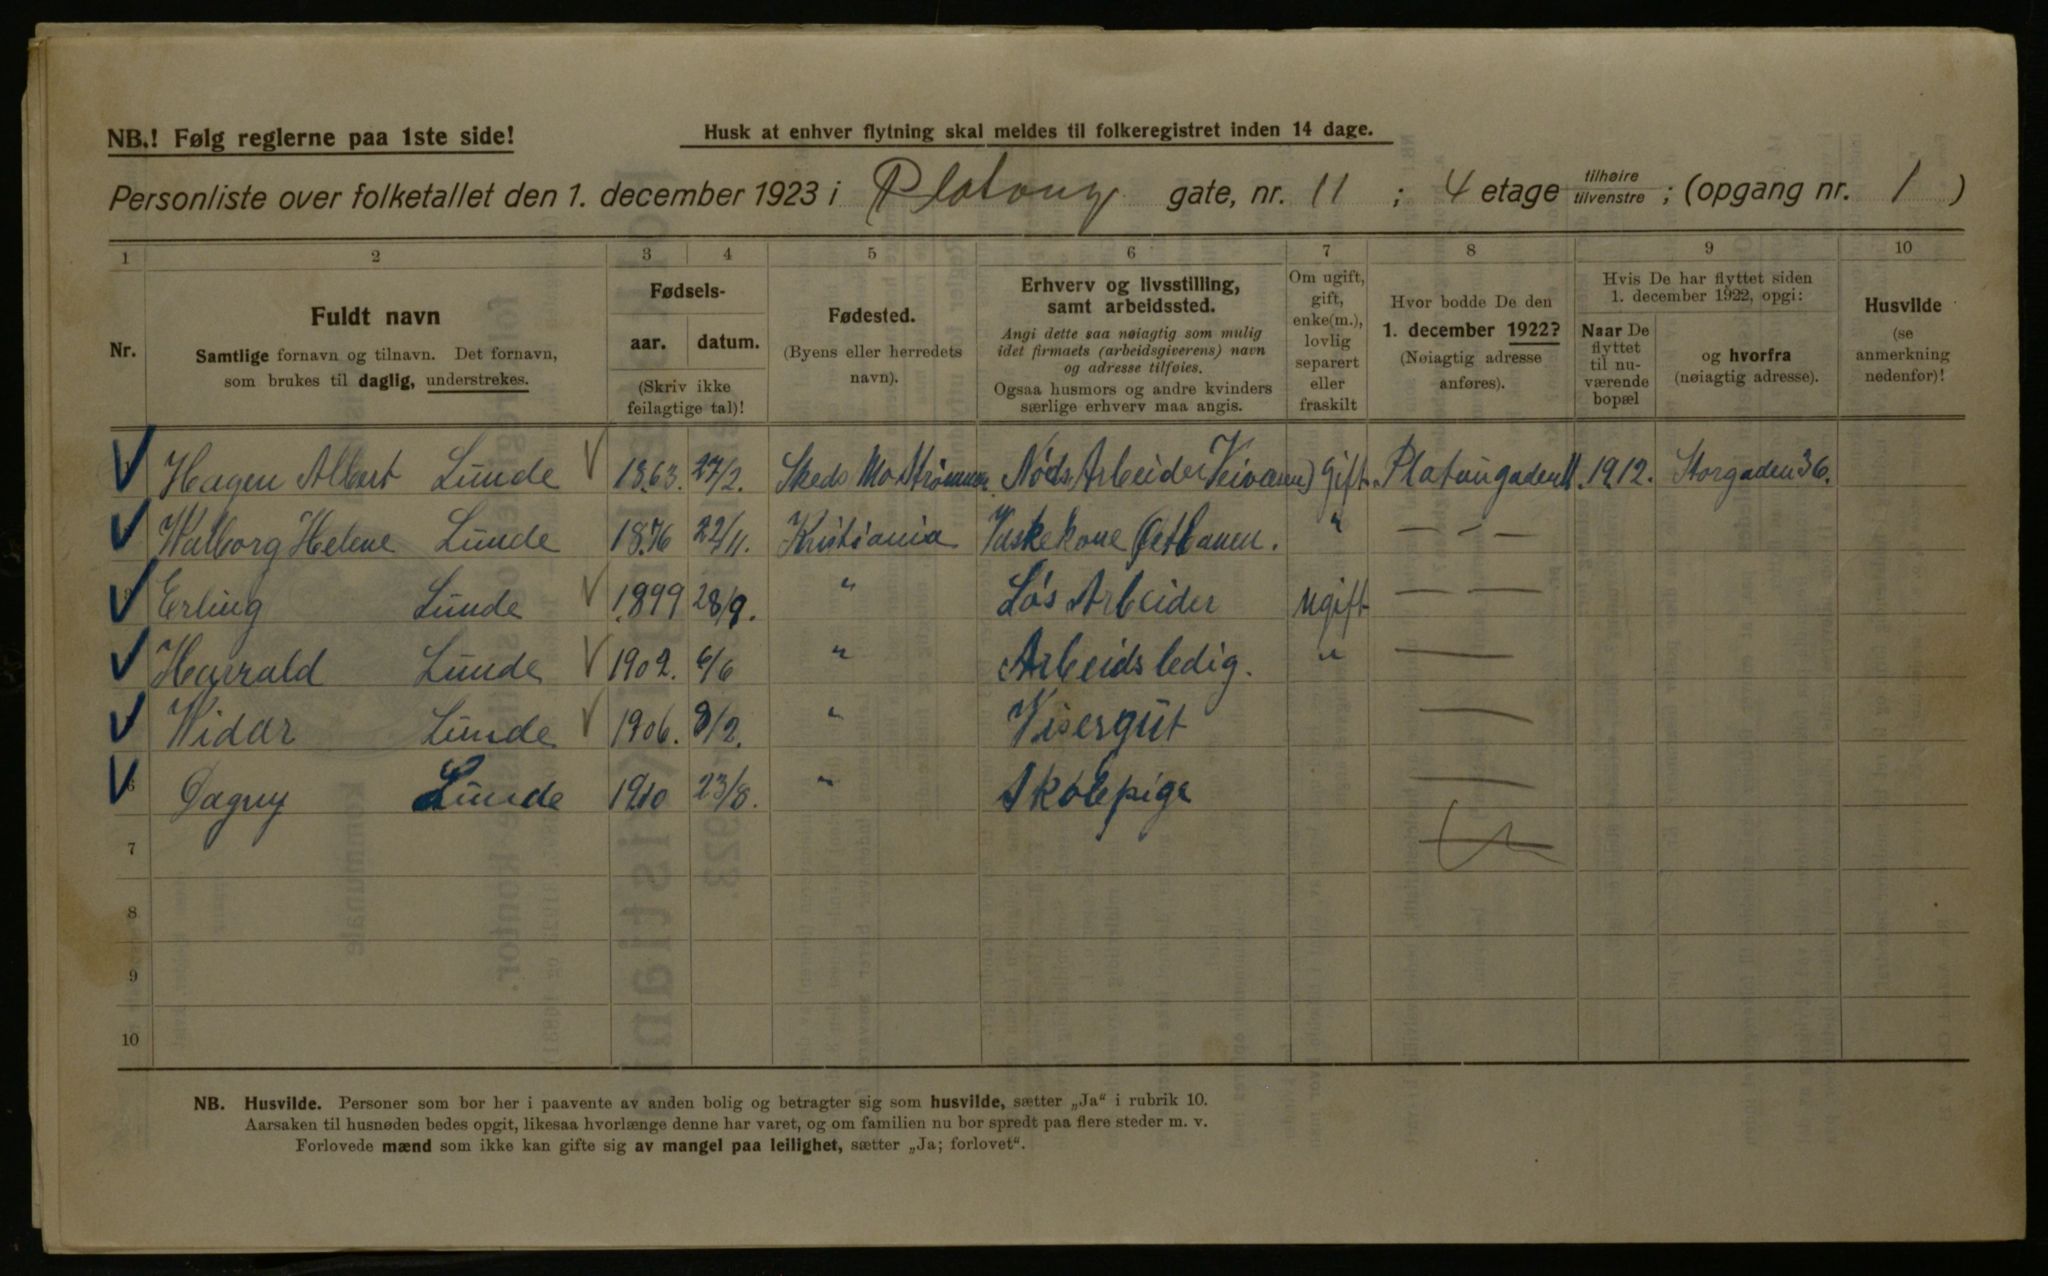 NB.! Følg reglerne paa 1ste side!
Husk at enhver flytning skal meldes til folkeregistret inden 14 dage.
Personliste over folketallet den 1. december 1923 i Platoug gate, nr. 11 ; 4 etage tilhøire tilvenstre ; (opgang nr. 1 )
1 2 3 4 5 6 7 8 9 10
Nr.
Fuldt navn
Samtlige fornavn og tilnavn. Det fornavn,
som brukes til daglig, understrekes.
Fødsels-
aar. datum.
(Skriv ikke
feilagtige tal)!
Fødested.
(Byens eller herredets
navn).
Erhverv og livsstilling,
samt arbeidssted.
Angi dette saa nøiagtig som mulig
idet firmaets (arbeidsgiverens) navn
og adresse tilføies.
Ogsaa husmors og andre kvinders
særlige erhverv maa angis.
Om ugift,
gift,
enke(m.),
lovlig
separert
eller
fraskilt
Hvor bodde De den
1. december 1922?
(Nøiagtig adresse
anføres).
Hvis De har flyttet siden
1. december 1922, opgi:
Naar De
flyttet
til nu-
værende
bopæl
og hvorfra
(nøiagtig adresse).
Husvilde
(se
anmerkning
nedenfor)!
Hagen Albert Lunde 1863. 27/2. Skedsmo Strømmen Nøds Arbeider Gift. Platougaden 11. 1912. Storgaden 36.
Walborg Helene Lunde 1876 22/11. Kristiania Vaskekone Østbanen. " — - —
3 Erling Lunde 1899 28/9. " Løs Arbeider Ugift — —
Harrald Lunde 1902. 6/6 " Arbeidsledig. " —
Widar Lunde 1906. 8/2. " Visergut —
6 Dagny Lunde 1910 23/8. " Skolepige —
7 —
8
9
10
NB. Husvilde. Personer som bor her i paavente av anden bolig og betragter sig som husvilde, sætter „Ja“ i rubrik 10.
Aarsaken til husnøden bedes opgit, likesaa hvorlænge denne har varet, og om familien nu bor spredt paa flere steder m. v.
Forlovede mænd som ikke kan gifte sig av mangel paa leilighet, sætter „Ja; forlovet“.